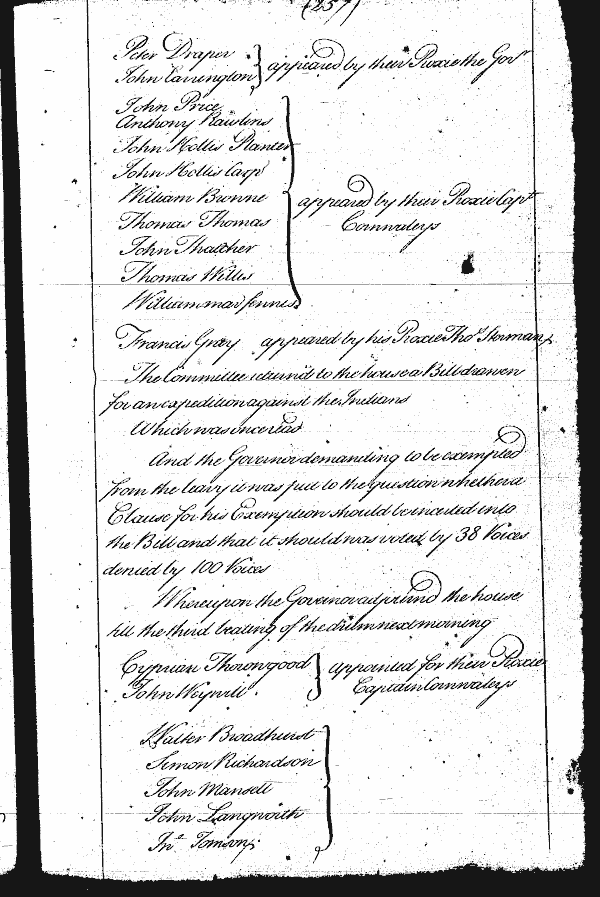 (257)
Peter Draper
John Carington } appeared by their Proxie the Govr
John Price
Anthony Rawlins
John Hollis Planter
John Hollis Carp
William Browne } appeared by their Proxie Capt
Thomas Thomas Cornwaleys
John Thatcher
Thomas Willis
William
Francis Gray appeared by his Proxie Tho
The Committee returnd to the house a Bill drawen
for an expedition against the Indians
Which was once read
And the Governor demanding to be exempted
from the leavy it was put to the question whether a
Clause for his Exemption should be incerted into
the Bill and that it should was voted by 38 Voices
denied by 100 Voices
Whereupon the Governor adjournd the house
till the third beating of the drum next morning
Cyprian Thorowgood } appointed for their Proxie
John Weyvill Captain Cornwaleys
Walter Broadhurst
Simon Richardson
John Mansell
John Langworth
Jno Tomson